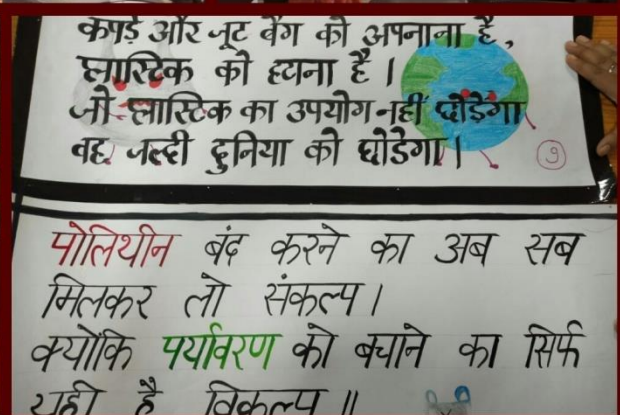 कपड़े और जूट बैग को अपनाना है,
प्लास्टिक को हटाना है ।
जो प्लास्टिक का उपयोग नहीं छोड़ेगा
वह जल्दी दुनिया को छोडेगा ।
9
पोलिथीन बंद करने का अब सब
मिलकर लो संकल्प ।
क्योंकि पर्यावरण को बचाने का सिर्फ
यही है विकल्प ॥